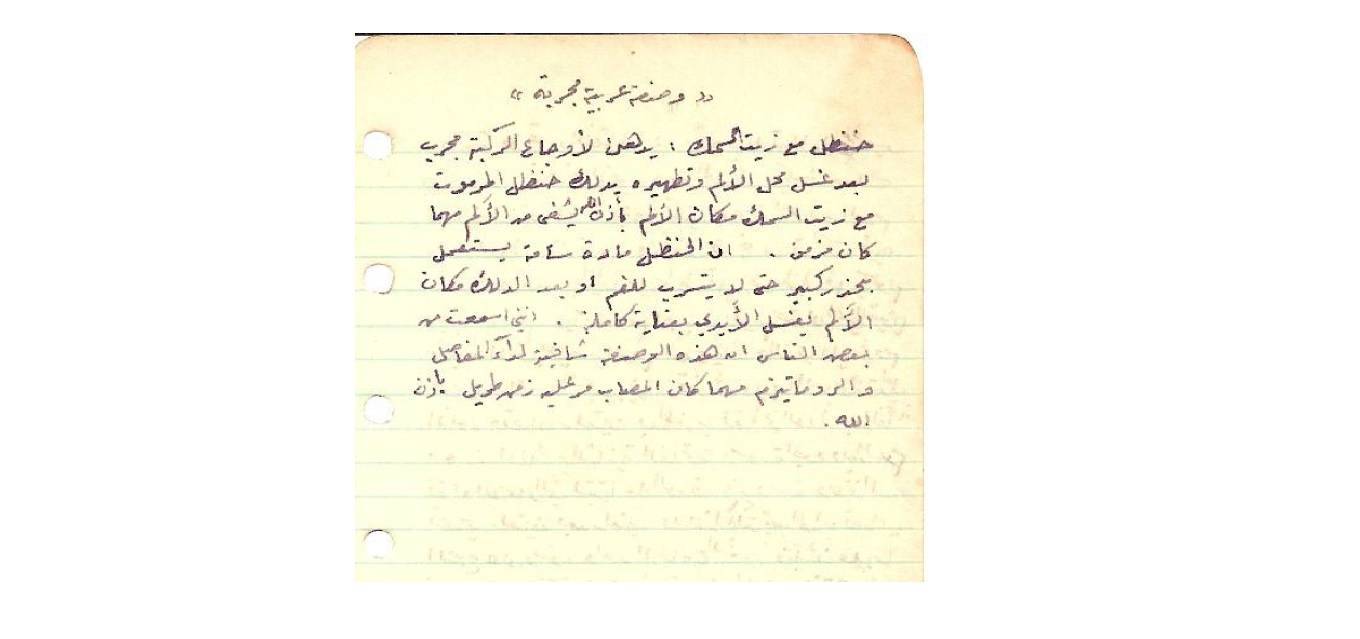 « وصفة عربية مجربة »
حنظل مع زيت السمك : يدهن لأوجاع الركبة مجرب
بعد غسل محل الألم وتطهيره يدلك حنظل
مع زيت السمك مكان الألم بأذن الله يشفى من الألم مهما
كان مزمن . ان الحنظل مادة سامة يستعمل
بحذر كبير حتى لا يتسرب للفم او بعد الدلك مكان
الألم يغسل الأيدي بعناية كاملة . انني اسمعت من
بعض الناس ان هذه الوصفة شافية لداء المفاصل
والروماتيزم مهما كان المصاب مر عليه زمن طويل بأذن
الله .